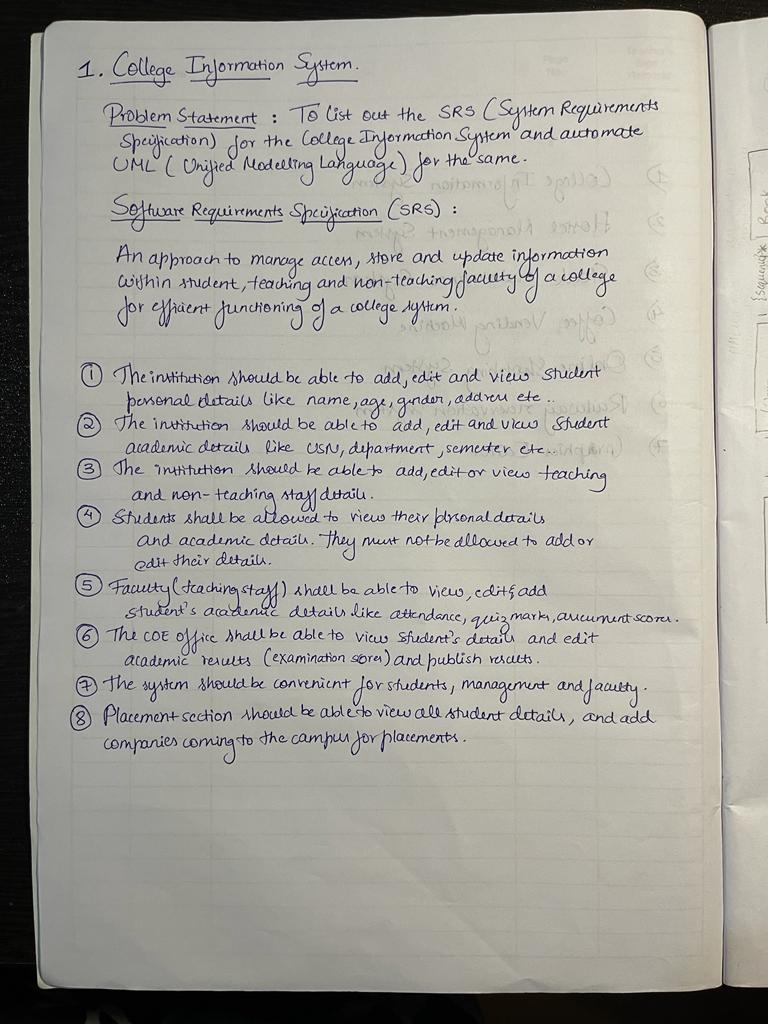 1. College Information System.
Problem Statement : To list out the SRS (System Requirements
Specification) for the College Information System and automate
UML ( Unified Modelling Language) for the same.
Software Requirements Specification (SRS) :
An approach to manage access, store and update information
within student, teaching and non-teaching faculty of a college
for efficient functioning of a college system.
① The institution should be able to add, edit and view student
personal details like name, age, gender, address etc..
② The institution should be able to add, edit and view student
academic details like USN, department, semester etc..
③ The institution should be able to add, edit or view teaching
and non-teaching staff details.
④ Students shall be allowed to view their personal details
and academic details. They must not be allowed to add or
edit their details.
⑤ Faculty (teaching staff) shall be able to view, edit & add
student's academic details like attendance, quiz marks, assessment scores.
⑥ The COE office shall be able to view student's details and edit
academic results (examination scores) and publish results.
⑦ The system should be convenient for students, management and faculty.
⑧ Placement section should be able to view all student details, and add
companies coming to the campus for placements.